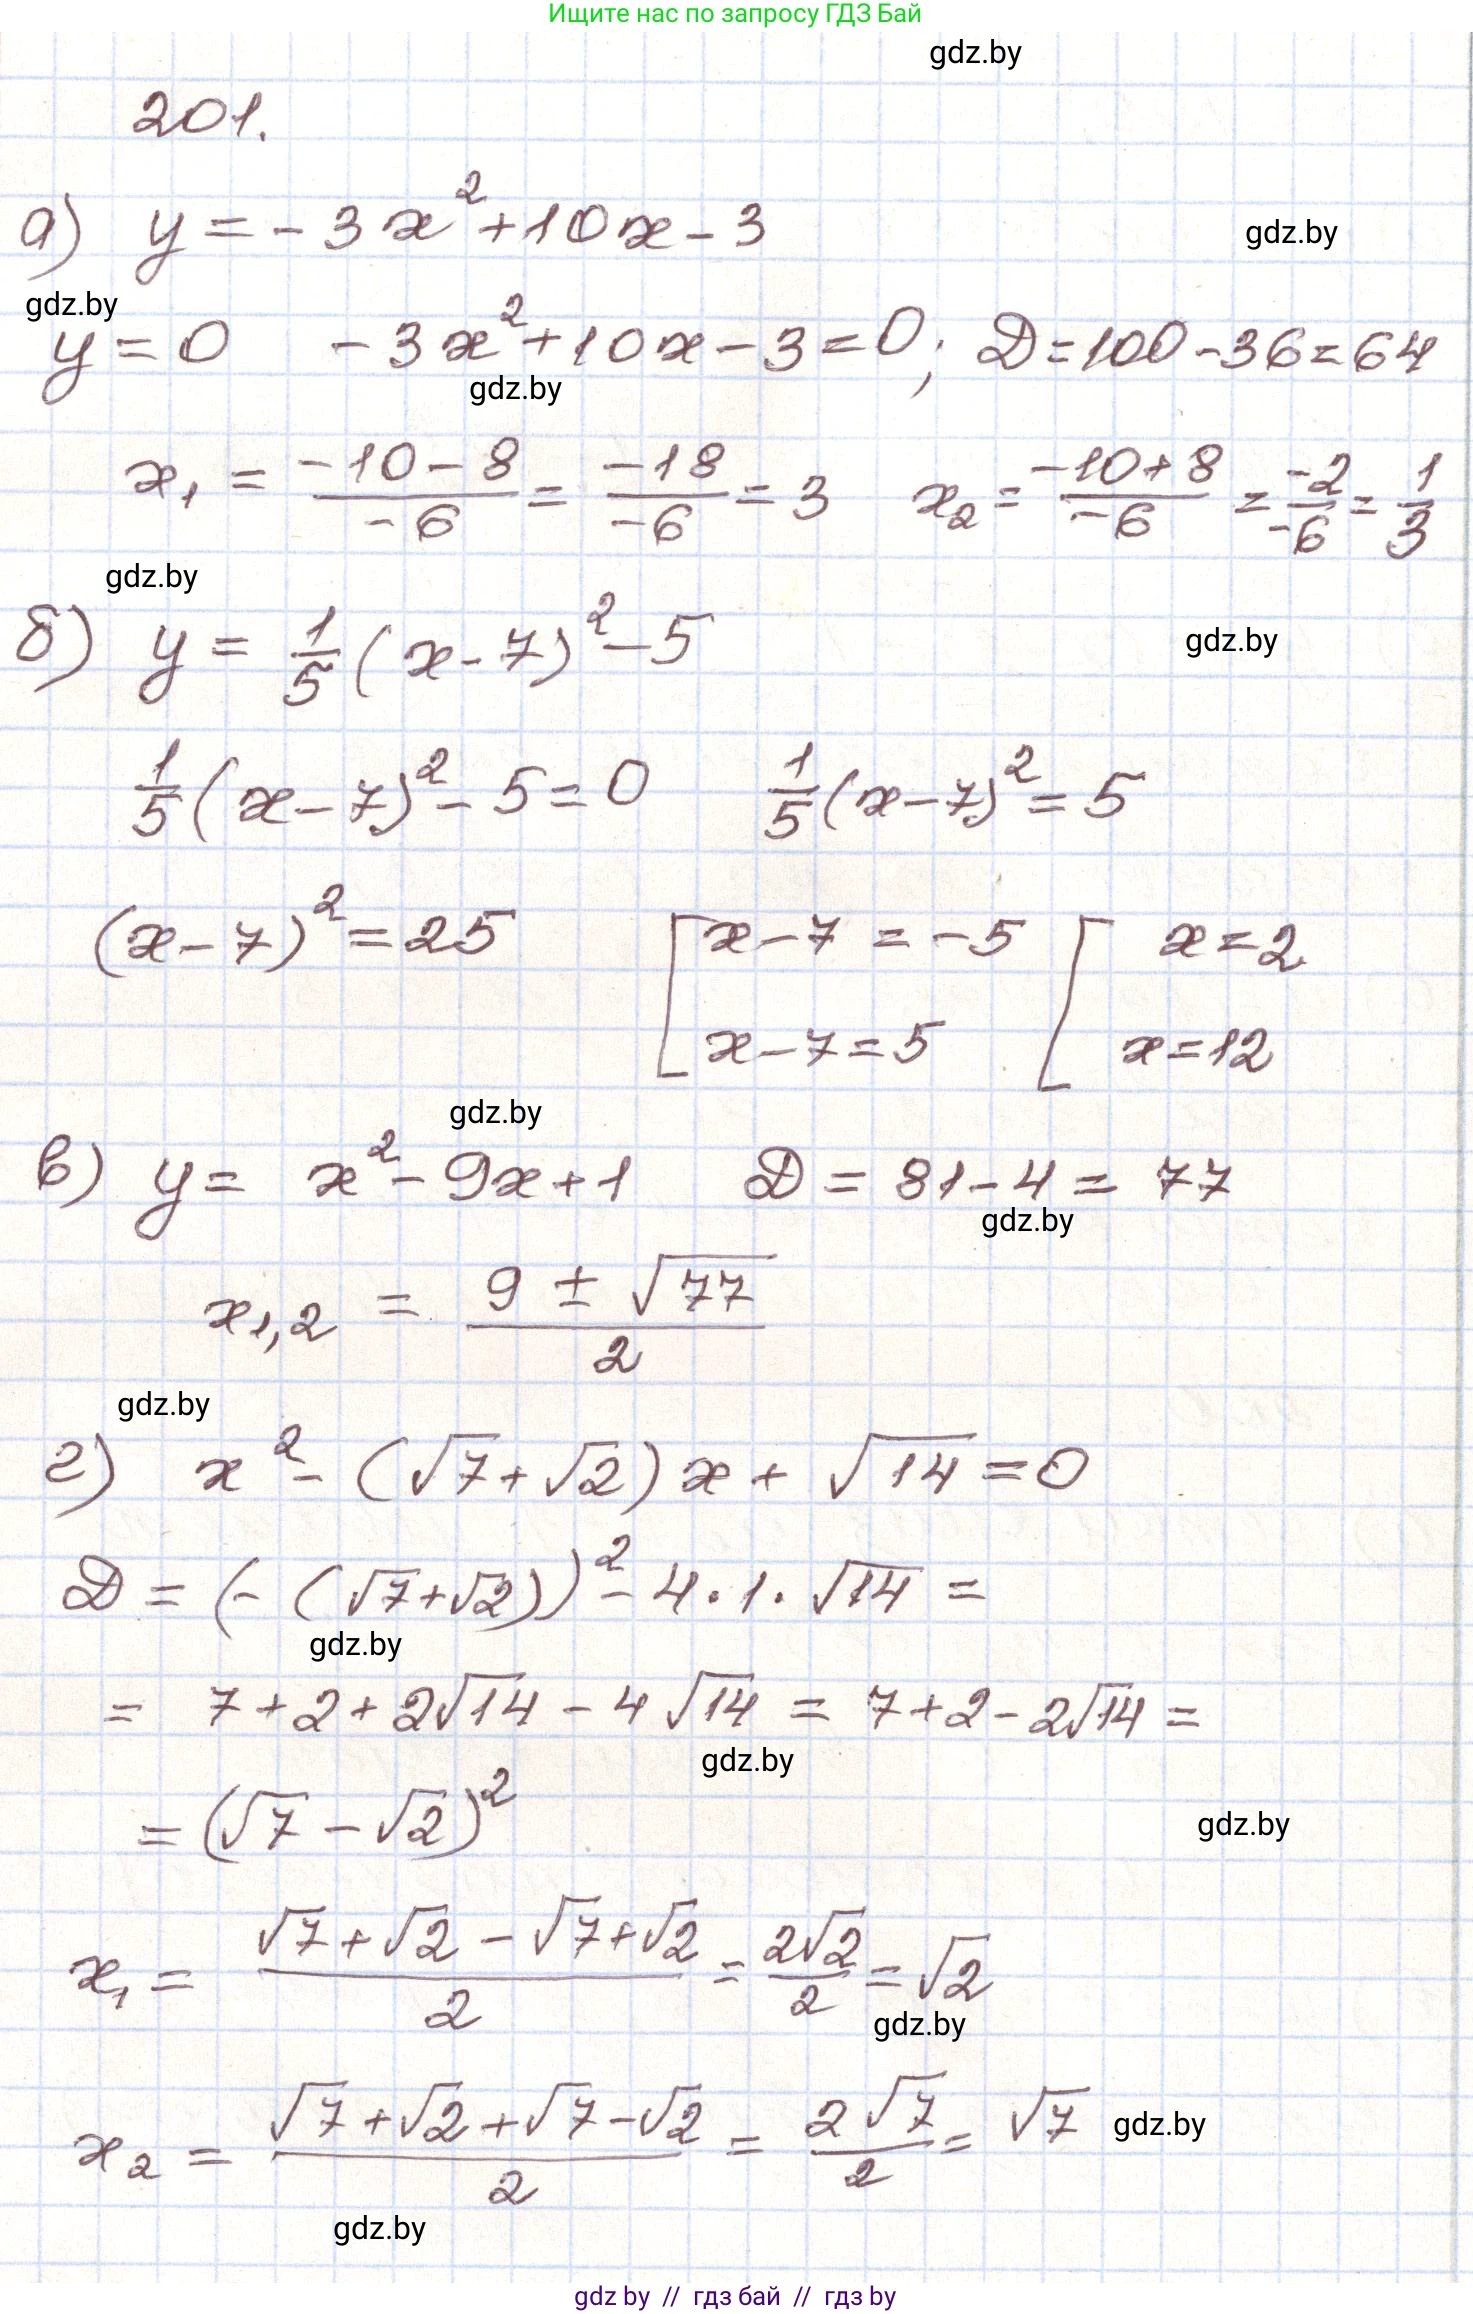 Ищите нас по запросу ГДЗ Бай
gdz.by
201.
а) y = -3x² + 10x - 3
gdz.by
gdz.by
y = 0 -3x² + 10x - 3 = 0; D = 100 - 36 = 64
gdz.by
x₁ = (-10 - 8)/(-6) = (-18)/(-6) = 3 x₂ = (-10 + 8)/(-6) = (-2)/(-6) = 1/3
gdz.by
б) y = 1/5 (x - 7)² - 5
gdz.by
1/5 (x - 7)² - 5 = 0 1/5 (x - 7)² = 5
(x - 7)² = 25 [ x - 7 = -5 [ x = 2
x - 7 = 5 x = 12
gdz.by
в) y = x² - 9x + 1 D = 81 - 4 = 77
gdz.by
x₁,₂ = (9 ± √77)/2
gdz.by
г) x² - (√7 + √2) x + √14 = 0
D = (-(√7 + √2))² - 4 · 1 · √14 =
gdz.by
= 7 + 2 + 2√14 - 4√14 = 7 + 2 - 2√14 =
gdz.by
= (√7 - √2)²
gdz.by
x₁ = (√7 + √2 - √7 + √2)/2 = 2√2/2 = √2
gdz.by
x₂ = (√7 + √2 + √7 - √2)/2 = 2√7/2 = √7
gdz.by
gdz.by
gdz by // гдз бай // гдз by